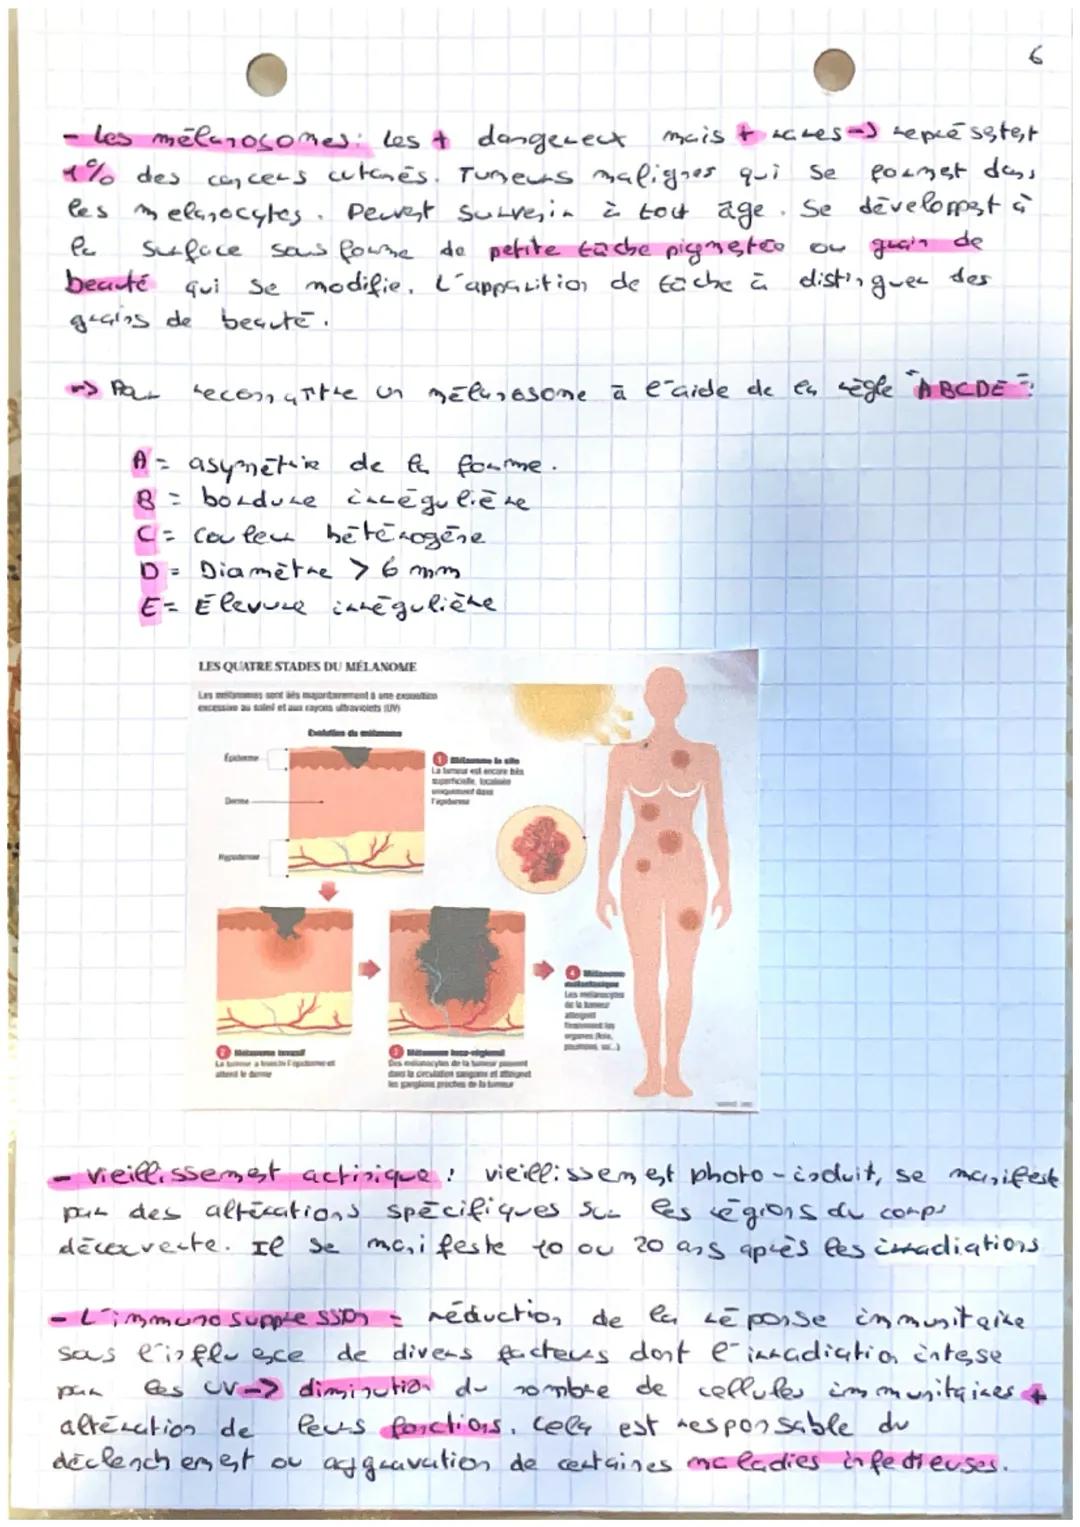 6
- Les mélanosomes: les + dangereux mais + rares -> représentent
1% des cancers cutanés. Tumeurs malignes qui se forment dans
les melanocytes. Peuvent survenir à tout âge. Se développent à
la surface sous forme de petite tâche pigmentée ou grain de
beauté qui se modifie. L'apparition de tâche à distinguer des
grains de beauté.
-> Pour reconnaître un mélanosome à l'aide de la règle "ABCDE":
A = asymétrie de la forme.
B = bordure irrégulière
C = Couleur hétérogène
D = Diamètre > 6 mm
E = Élevure irrégulière
LES QUATRE STADES DU MÉLANOME
Les mélanomes sont liés majoritairement à une exposition
excessive au soleil et aux rayons ultraviolets (UV)
Évolution du mélanome
Épiderme
Derme
Hypoderme
1 Mélanome in situ
La tumeur est encore très
superficielle, localisée
uniquement dans
l'épiderme
2 Mélanome invasif
La tumeur a franchi l'épiderme et
atteint le derme
3 Mélanome loco-régional
Des mélanocytes de la tumeur passent
dans la circulation sanguine et atteignent
les ganglions proches de la tumeur
4 Mélanome
métastasique
Les mélanocytes
de la tumeur
atteignent
finalement les
organes (foie,
poumons, os...)
- Vieillissement actinique: vieillissement photo-induit, se manifeste
par des altérations spécifiques sur les régions du corps
découverte. Il se manifeste 10 ou 20 ans après les irradiations
- L'immunosuppression = réduction de la réponse immunitaire
sous l'influence de divers facteurs dont l'irradiation intense
par les UV -> diminution du nombre de cellules immunitaires +
altération de leurs fonctions. Cela est responsable du
déclenchement ou aggravation de certaines maladies infectieuses.